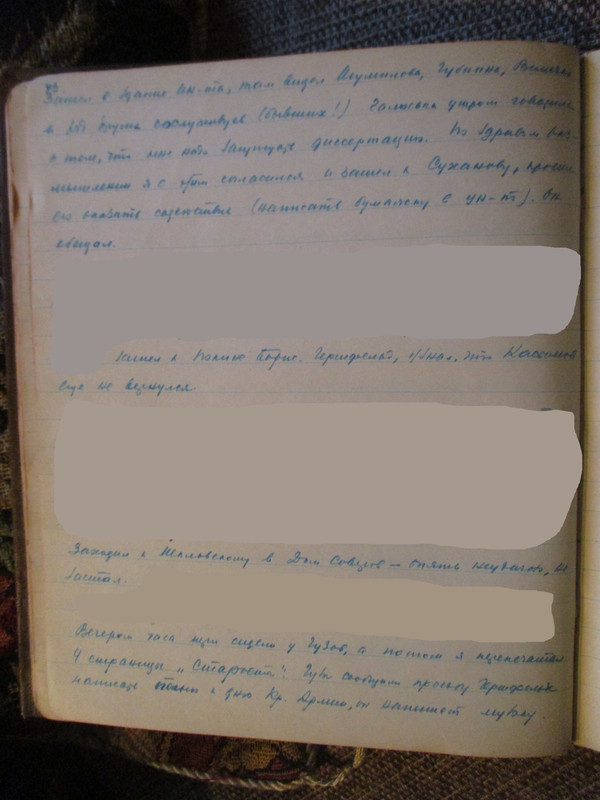 Зашел в здание ин-та, там видел Шумилова, Губкина,
и ряд других сослуживцев (бывших!) Галюська утром говорила
о том, что мне надо защищать диссертацию. По здравом раз-
мышлении я с этим согласился и зашел к Суханову, просил
его оказать содействие (написать бумажку в ун-т). Он
обещал.
Зашел к Полине Борис. Гершфельд, узнал, что
еще не вернулся.
Заходил к Шкловскому в Дом Советов – опять неудачно, не
застал.
Вечером часа три сидели у Гузов, а потом я перепечатал
4 страницы „Старости“. Гуз сообщил просьбу Гершфельда
написать песни к дню Кр. Армии, он напишет музыку.